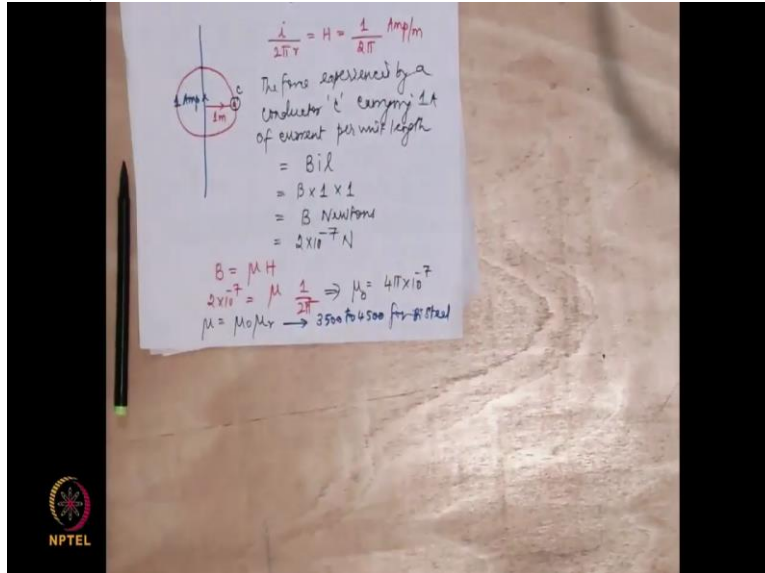 i/2πr = H = 1/2π Amp/m
1 Amp
1m
C
The force experienced by a
conductor 'c' carrying 1A
of current per unit length
= Bil
= B x 1 x 1
= B Newtons
= 2x10⁻⁷ N
B = μH
2x10⁻⁷ = μ 1/2π ⇒ μ₀ = 4πx10⁻⁷
μ = μ₀μᵣ → 3500 to 4500 for Steel
NPTEL